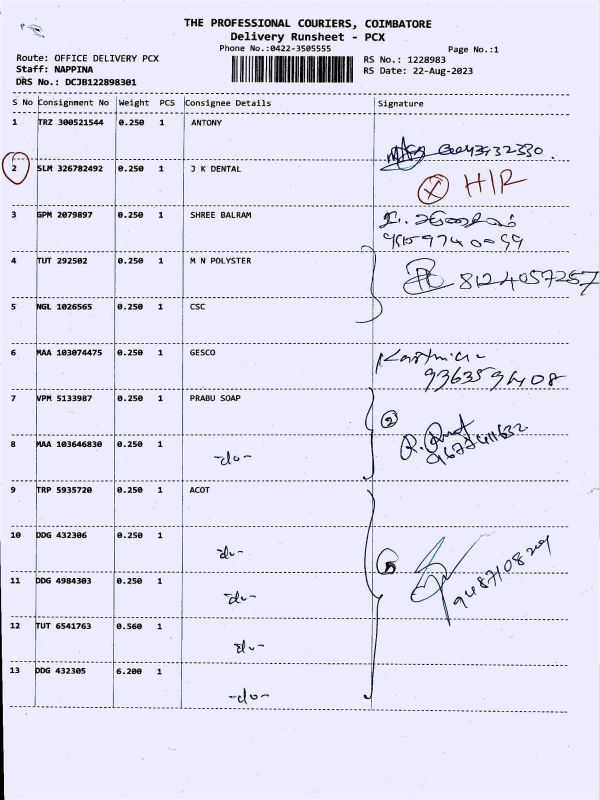 THE PROFESSIONAL COURIERS, COIMBATORE
Delivery Runsheet - PCX
Phone No.:0422-3505555 Page No.:1
Route: OFFICE DELIVERY PCX RS No.: 1228983
Staff: NAPPINA RS Date: 22-Aug-2023
DRS No.: DCJB122898301
S No Consignment No Weight PCS Consignee Details Signature
1 TRZ 300521544 0.250 1 ANTONY
2 SLM 326782492 0.250 1 J K DENTAL
X H/R
3 GPM 2079897 0.250 1 SHREE BALRAM
4 TUT 292502 0.250 1 M N POLYSTER
8124057257
5 NGL 1026565 0.250 1 CSC
6 MAA 103074475 0.250 1 GESCO
9363594408
7 VPM 5133987 0.250 1 PRABU SOAP
2
8 MAA 103646830 0.250 1 -do-
9 TRP 5935720 0.250 1 ACOT
10 DDG 432306 0.250 1 -do-
5
11 DDG 4984303 0.250 1 -do-
12 TUT 6541763 0.560 1 -do-
13 DDG 432305 6.200 1 -do-